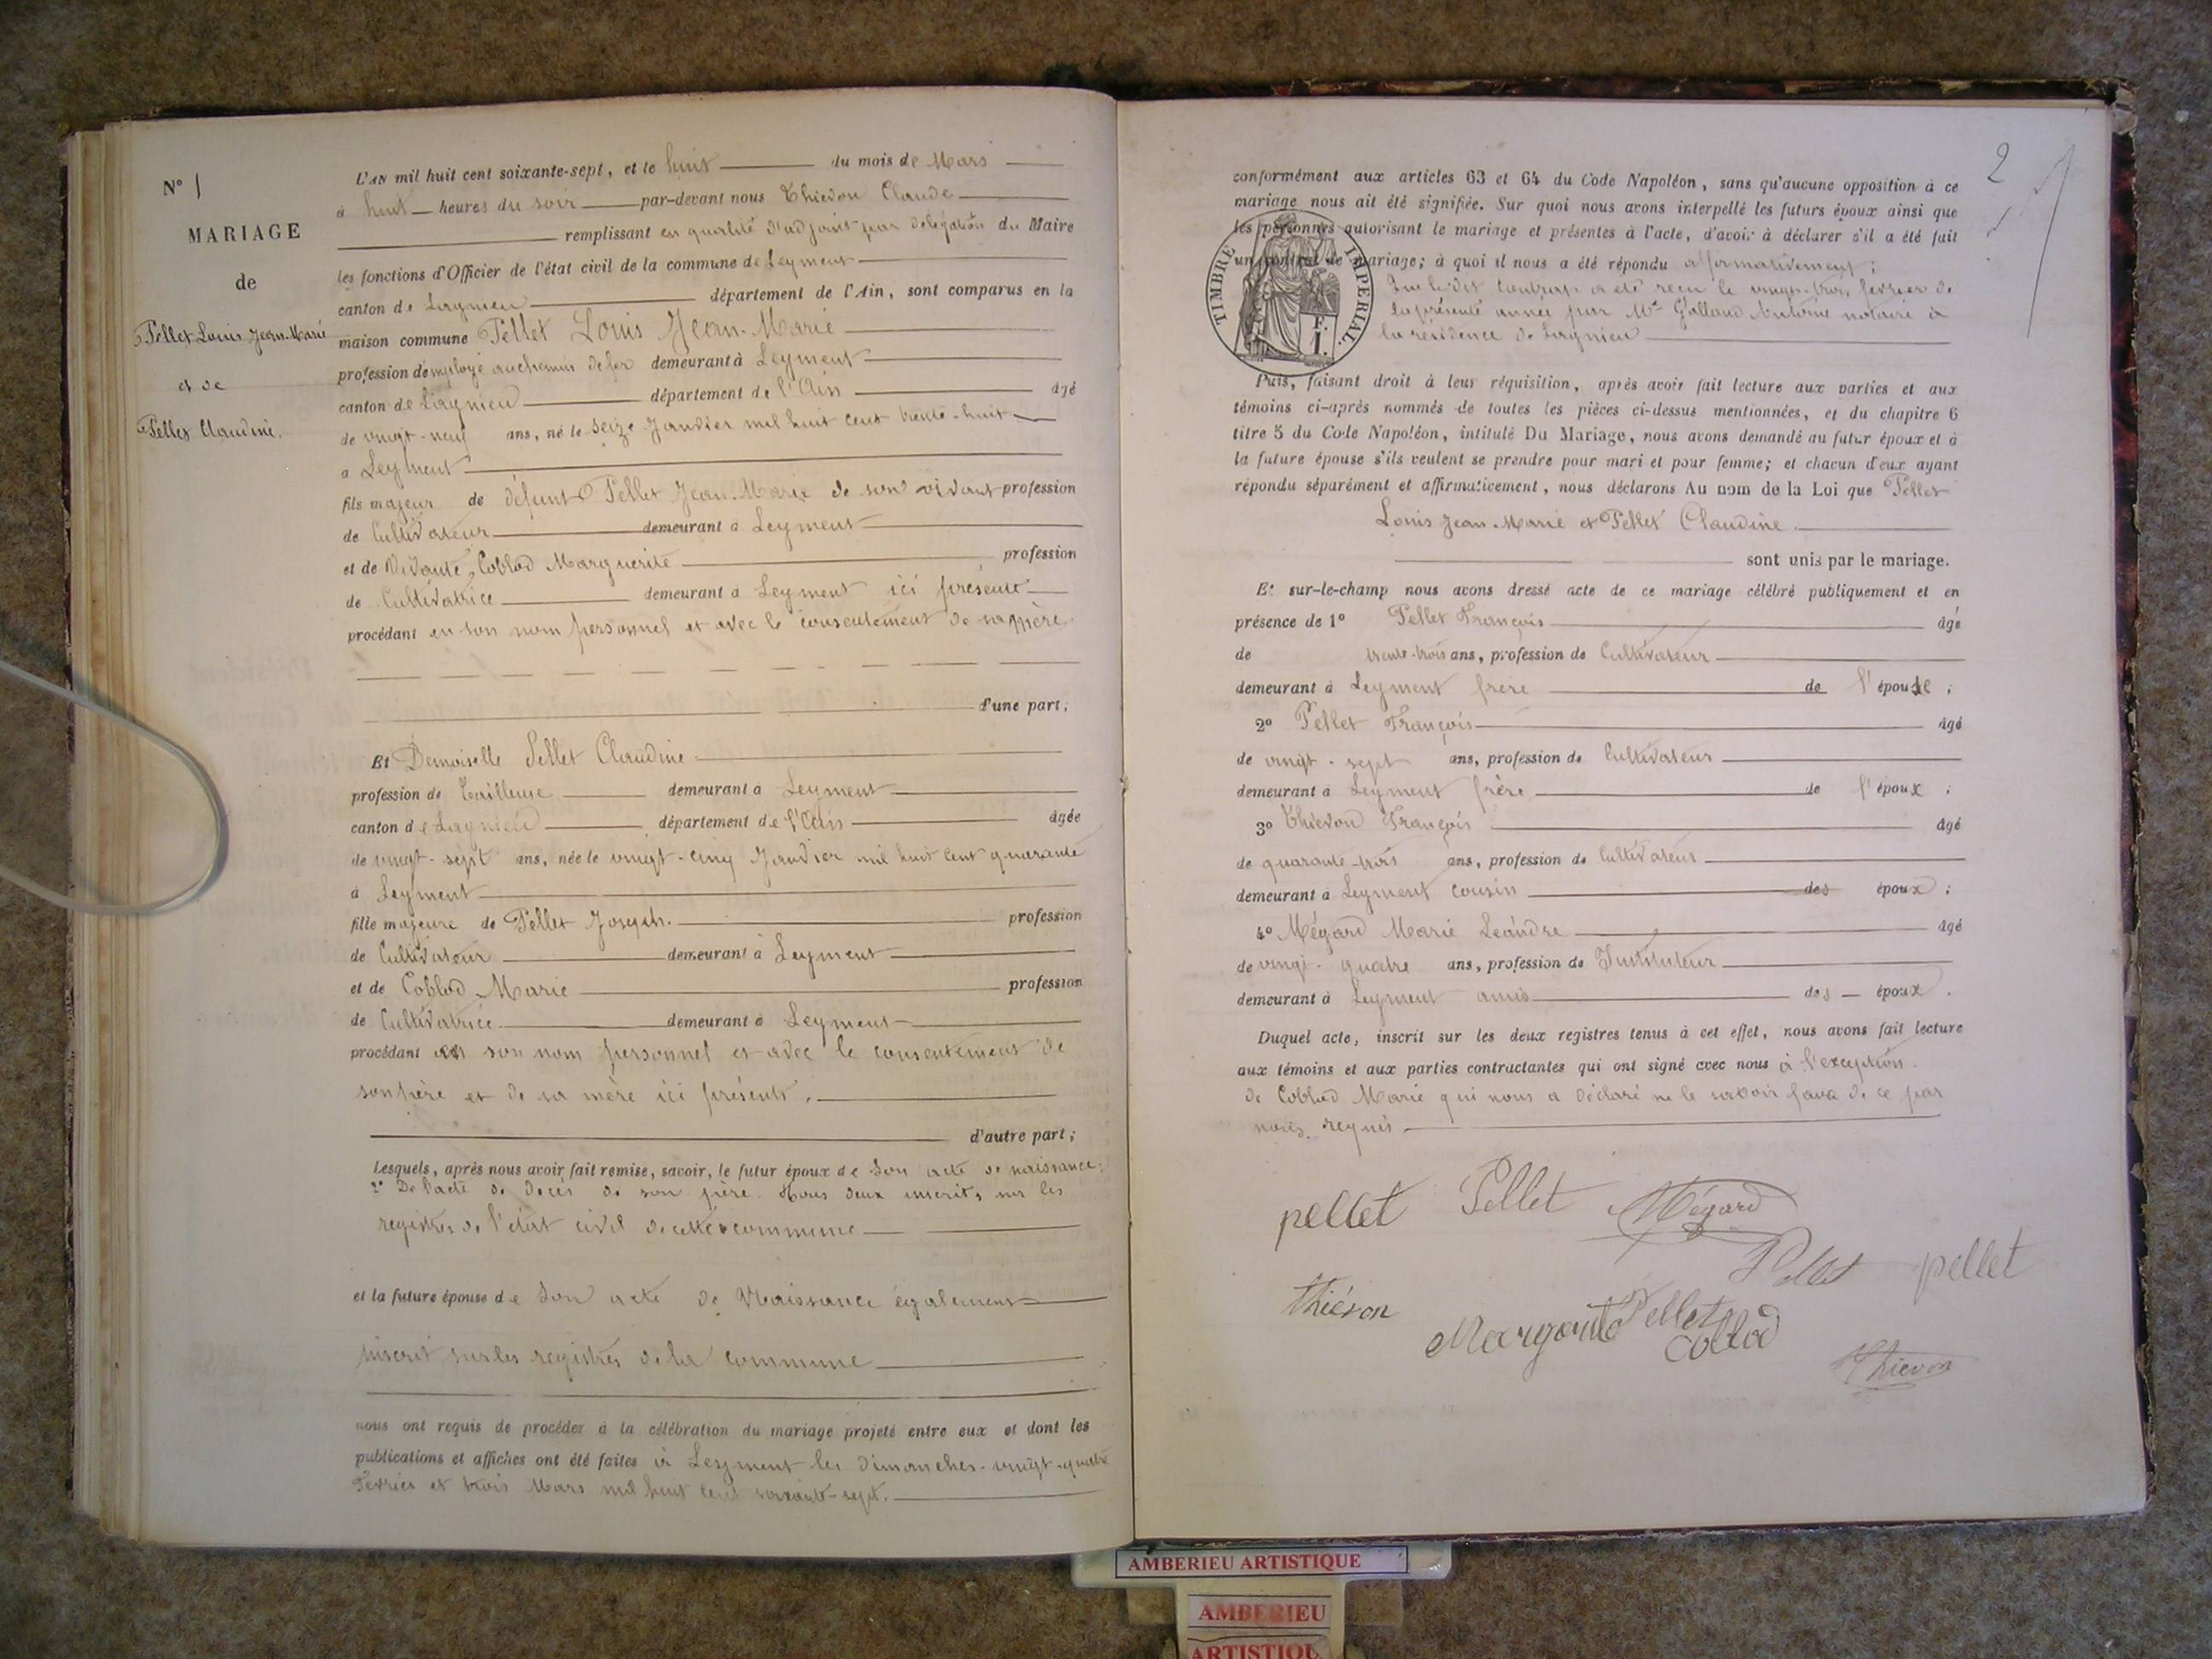 N° 1
MARIAGE
de
Pellet Louis Jean-Marie
et de
Pellet Claudine.
L'AN mil huit cent soixante-sept, et le huit du mois de Mars
à huit heures du soir par-devant nous Thiévon Claude
remplissant en qualité d'adjoint par délégation du Maire
les fonctions d'Officier de l'état civil de la commune de Leyment
canton de Lagnieu département de l'Ain, sont comparus en la
maison commune Pellet Louis Jean-Marie
profession d'employé au chemin de fer demeurant à Leyment
canton de Lagnieu département de l'Ain âgé
de vingt-neuf ans, né le seize Janvier mil huit cent trente-huit
à Leyment
fils majeur de défunt Pellet Jean-Marie de son vivant profession
de Cultivateur demeurant à Leyment
et de Vivante, Coblod Marguerite profession
de Cultivatrice demeurant à Leyment ici présente
procédant en son nom personnel et avec le consentement de sa mère.
d'une part;
Et Demoiselle Pellet Claudine
profession de Tailleuse demeurant à Leyment
canton de Lagnieu département de l'Ain âgée
de vingt-sept ans, née le vingt-cinq Janvier mil huit cent quarante
à Leyment
fille majeure de Pellet Joseph. profession
de Cultivateur demeurant à Leyment
et de Coblod Marie profession
de Cultivatrice demeurant à Leyment
procédant en son nom personnel et avec le consentement de
son père et de sa mère ici présents.
d'autre part;
Lesquels, après nous avoir fait remise, savoir, le futur époux de Son acte de naissance;
2° De l'acte de décès de son père. Tous deux inscrits sur les
registres de l'état civil de cette commune
et la future épouse de Son acte de Naissance également
inscrit sur les registres de la commune
nous ont requis de procéder à la célébration du mariage projeté entre eux et dont les
publications et affiches ont été faites à Leyment les dimanches vingt-quatre
Février et trois Mars mil huit cent soixante-sept.
2
conformément aux articles 63 et 64 du Code Napoléon, sans qu'aucune opposition à ce
mariage nous ait été signifiée. Sur quoi nous avons interpellé les futurs époux ainsi que
les personnes autorisant le mariage et présentes à l'acte, d'avoir à déclarer s'il a été fait
un contrat de mariage; à quoi il nous a été répondu affirmativement;
Que le dit Contrat a été reçu le vingt-trois février de
la présente année par Me Galland Antoine notaire à
la résidence de Lagnieu
TIMBRE IMPERIAL.
F.
1.
Puis, faisant droit à leur réquisition, après avoir fait lecture aux parties et aux
témoins ci-après nommés de toutes les pièces ci-dessus mentionnées, et du chapitre 6
titre 5 du Code Napoléon, intitulé Du Mariage, nous avons demandé au futur époux et à
la future épouse s'ils veulent se prendre pour mari et pour femme; et chacun d'eux ayant
répondu séparément et affirmativement, nous déclarons Au nom de la Loi que Pellet
Louis Jean-Marie et Pellet Claudine.
sont unis par le mariage.
Et sur-le-champ nous avons dressé acte de ce mariage célébré publiquement et en
présence de 1° Pellet François âgé
de trente-trois ans, profession de Cultivateur
demeurant à Leyment frère de l'épouse;
2° Pellet François âgé
de vingt-sept ans, profession de Cultivateur
demeurant à Leyment frère de l'époux;
3° Thiévon François âgé
de quarante-trois ans, profession de Cultivateur
demeurant à Leyment cousin des époux;
4° Mégard Marie Léandre âgé
de vingt-quatre ans, profession de Instituteur
demeurant à Leyment amis des époux.
Duquel acte, inscrit sur les deux registres tenus à cet effet, nous avons fait lecture
aux témoins et aux parties contractantes qui ont signé avec nous à l'exception
de Coblod Marie qui nous a déclaré ne le savoir faire de ce par
nous requis
pellet Pellet Mégard
Pellet pellet
thiévon
Pellet
Margarite Coblod
Thiévon
AMBERIEU ARTISTIQUE
AMBERIEU
ARTISTIQU